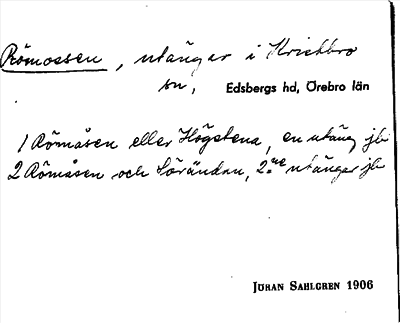 Römossen, utängar i Knistbro
sn, Edsbergs hd, Örebro län
1 Römåsen eller Högstena, en utäng jb
2 Römåsen och Sörändan, 2:ne utängar jb
JÖRAN SAHLGREN 1906